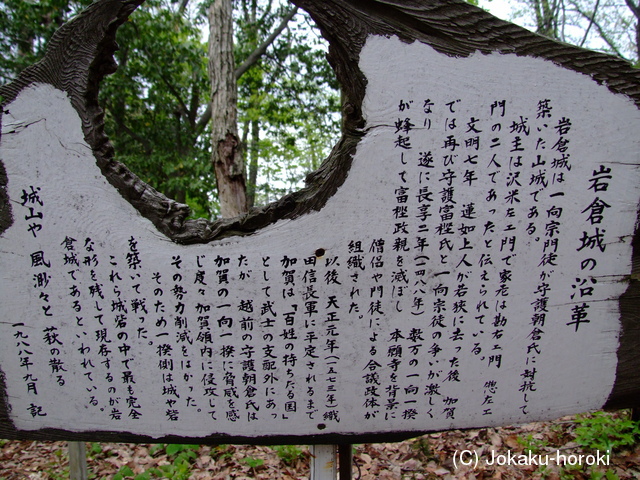 岩倉城の沿革
岩倉城は一向宗門徒が守護朝倉氏に対抗して
築いた山城である。
城主は沢米左エ門で家老は勘右エ門 惣左エ
門の二人であったと伝えられている。
文明七年 蓮如上人が若狭に去った後 加賀
では再び守護富樫氏と一向宗徒の争いが激しく
なり 遂に長享二年(一四八八年) 数万の一向一揆
が蜂起して富樫政親を滅ぼし 本願寺を背景に
僧侶や門徒による合議政体が
組織された。
以後 天正元年(一五七三年)織
田信長軍に平定されるまで
加賀は「百姓の持ちたる国」
として武士の支配外にあっ
たが 越前の守護朝倉氏は
加賀の一向一揆に脅威を感
じ度々加賀領内に侵攻して
その勢力削減をはかった。
そのため一揆側は城や砦
を築いて戦った。
これら城砦の中で最も完全
な形を残して現存するのが岩
倉城であるといわれている。
城山や 風渺々と 萩の散る
一九八八年九月 記
(C) Jokaku-horoki